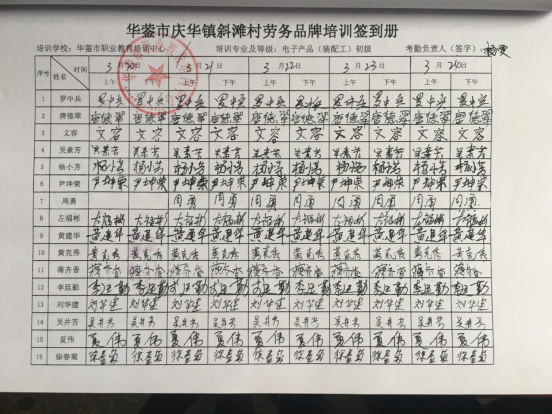 华蓥市庆华镇斜滩村劳务品牌培训签到册
培训学校：华蓥市职业教育培训中心 培训专业及等级：电子产品（装配工）初级 考勤负责人（签字）：
序号 姓名 时间 3月20日 3月21日 3月22日 3月23日 3月24日
上午 下午 上午 下午 上午 下午 上午 下午 上午 下午
1 罗中兵 罗中兵 罗中兵 罗中兵 罗中兵 罗中兵 罗中兵 罗中兵 罗中兵 罗中兵 罗中兵
2 唐德翠 唐德翠 唐德翠 唐德翠 唐德翠 唐德翠 唐德翠 唐德翠 唐德翠 唐德翠 唐德翠
3 文容 文容 文容 文容 文容 文容 文容 文容 文容 文容 文容
4 吴素芳 吴素芳 吴素芳 吴素芳 吴素芳 吴素芳 吴素芳 吴素芳 吴素芳 吴素芳 吴素芳
5 杨小芳 杨小芳 杨小芳 杨小芳 杨小芳 杨小芳 杨小芳 杨小芳 杨小芳 杨小芳 杨小芳
6 尹坤荣 尹坤荣 尹坤荣 尹坤荣 尹坤荣 尹坤荣 尹坤荣 尹坤荣 尹坤荣 尹坤荣 尹坤荣
7 周勇 周勇 周勇 周勇 周勇 周勇
8 左福彬 左福彬 左福彬 左福彬 左福彬 左福彬 左福彬 左福彬 左福彬 左福彬 左福彬
9 黄建华 黄建华 黄建华 黄建华 黄建华 黄建华 黄建华 黄建华 黄建华 黄建华 黄建华
10 黄克秀 黄克秀 黄克秀 黄克秀 黄克秀 黄克秀 黄克秀 黄克秀 黄克秀 黄克秀 黄克秀
11 蒋齐香
12 李廷勤 李廷勤 李廷勤 李廷勤 李廷勤 李廷勤 李廷勤 李廷勤 李廷勤 李廷勤 李廷勤
13 刘华建 刘华建 刘华建 刘华建 刘华建 刘华建 刘华建 刘华建 刘华建 刘华建 刘华建
14 吴井芳 吴井芳 吴井芳 吴井芳 吴井芳 吴井芳 吴井芳 吴井芳 吴井芳 吴井芳 吴井芳
15 夏伟 夏伟 夏伟 夏伟 夏伟 夏伟 夏伟 夏伟 夏伟 夏伟 夏伟
16 徐春菊 徐春菊 徐春菊 徐春菊 徐春菊 徐春菊 徐春菊 徐春菊 徐春菊 徐春菊 徐春菊